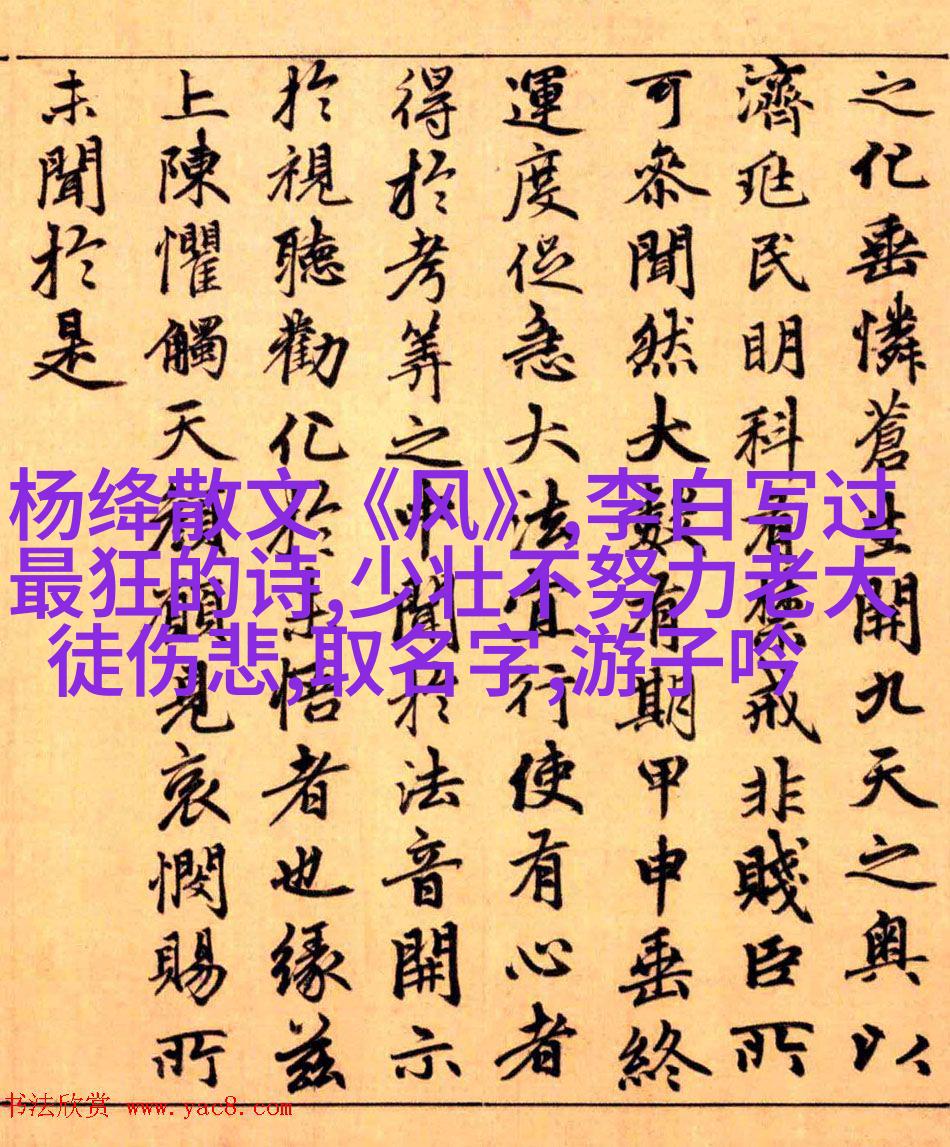 之化垂憐蒼生開九天之奧以
濟兆民明科有禁戒非賤臣所
可參聞然大數有期甲申垂終
運度促急大法宜行使有心者
得於考筭之中聞於法音開示
於視聽勸化於未悟者也緣茲
上陳懼觸天顏願見哀憫賜所
未聞於是
杨绛散文《风》,李白写过
最狂的诗,少壮不努力老大
徒伤悲,取名字,游子吟
书法欣赏 www.yac8.com